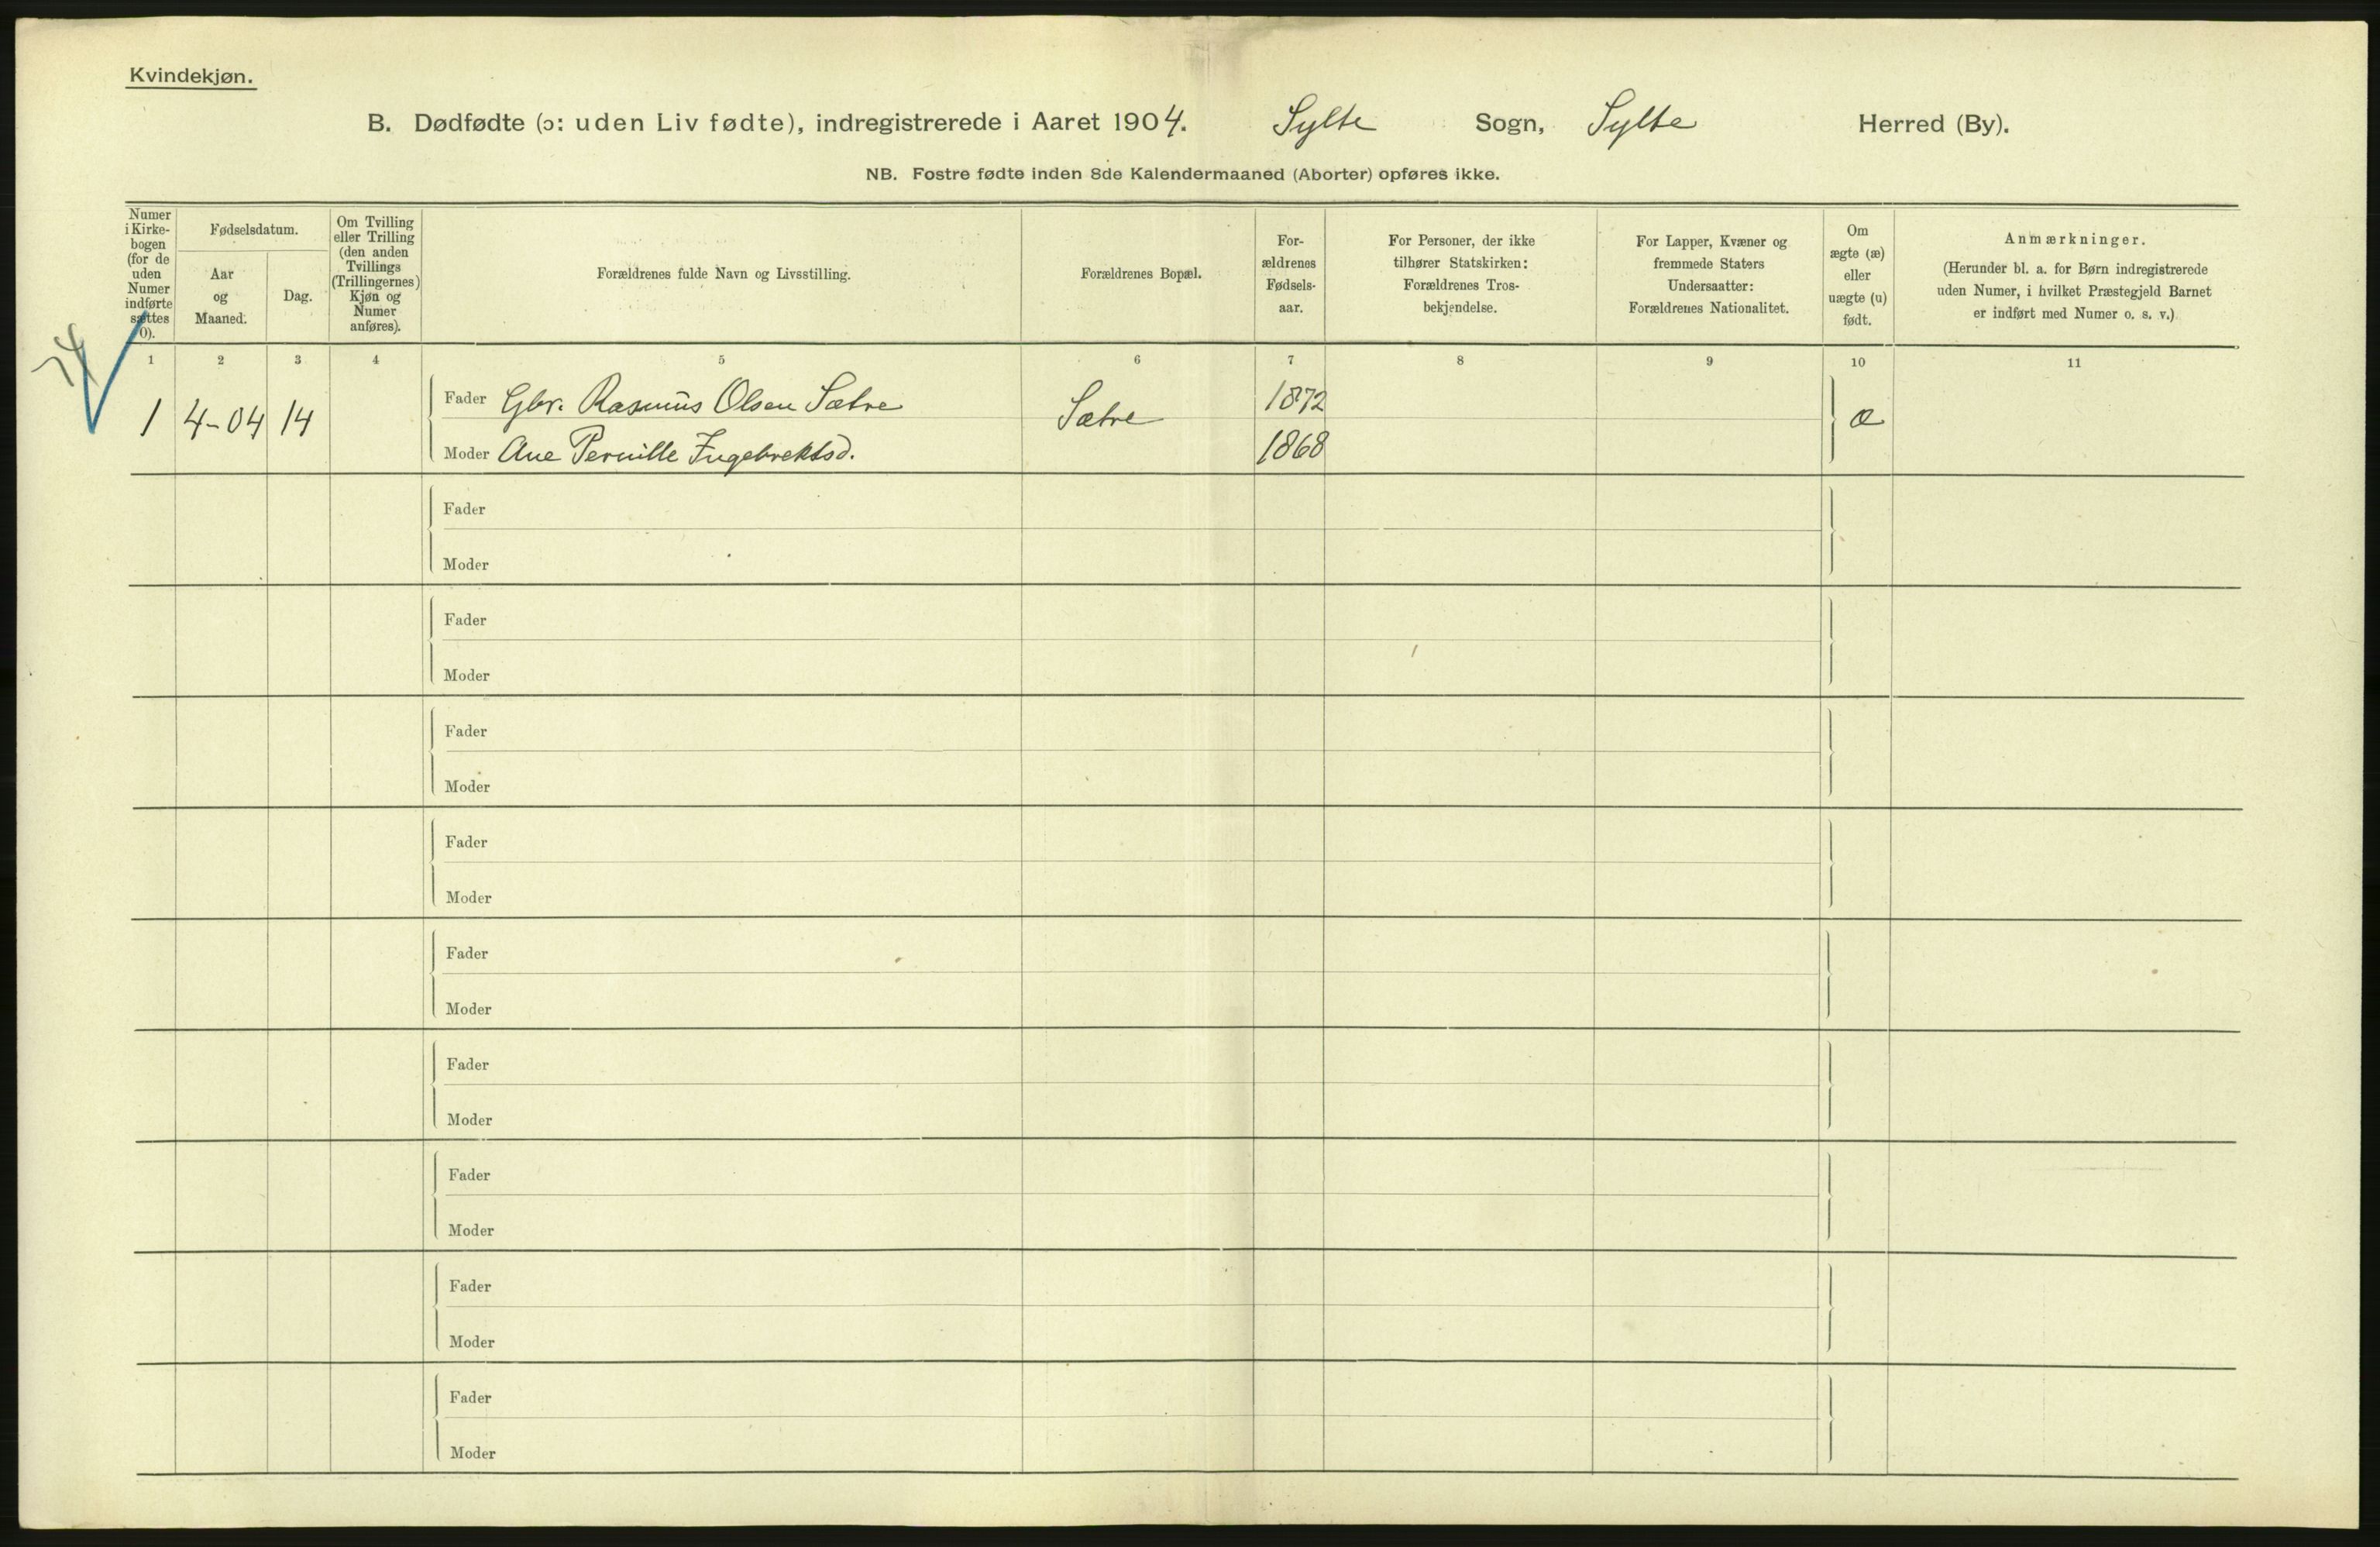 Kvindekjøn.
B. Dødfødte (ɔ: uden Liv fødte), indregistrerede i Aaret 1904. Sylte Sogn, Sylte Herred (By).
NB. Fostre fødte inden 8de Kalendermaaned (Aborter) opføres ikke.
Numer
i Kirke-
bogen
(for de
uden
Numer
indførte
sættes
0).
Fødselsdatum.
Aar
og
Maaned.
Dag.
Om Tvilling
eller Trilling
(den anden
Tvillings
(Trillingernes)
Kjøn og
Numer
anføres).
Forældrenes fulde Navn og Livsstilling.
Forældrenes Bopæl.
For-
ældrenes
Fødsels-
aar.
For Personer, der ikke
tilhører Statskirken:
Forældrenes Tros-
bekjendelse.
For Lapper, Kvæner og
fremmede Staters
Undersaatter:
Forældrenes Nationalitet.
Om
ægte (æ)
eller
uægte (u)
født.
Anmærkninger.
(Herunder bl. a. for Børn indregistrerede
uden Numer, i hvilket Præstegjeld Barnet
er indført med Numer o. s. v.)
1 2 3 4 5 6 7 8 9 10 11
Fader Gbr. Rasmus Olsen Sætre 1872
1 4-04 14 Sætre æ
Moder Ane Pernille Ingebrektsd. 1868
Fader
Moder
Fader
Moder
Fader
Moder
Fader
Moder
Fader
Moder
Fader
Moder
Fader
Moder
Fader
Moder
Fader
Moder